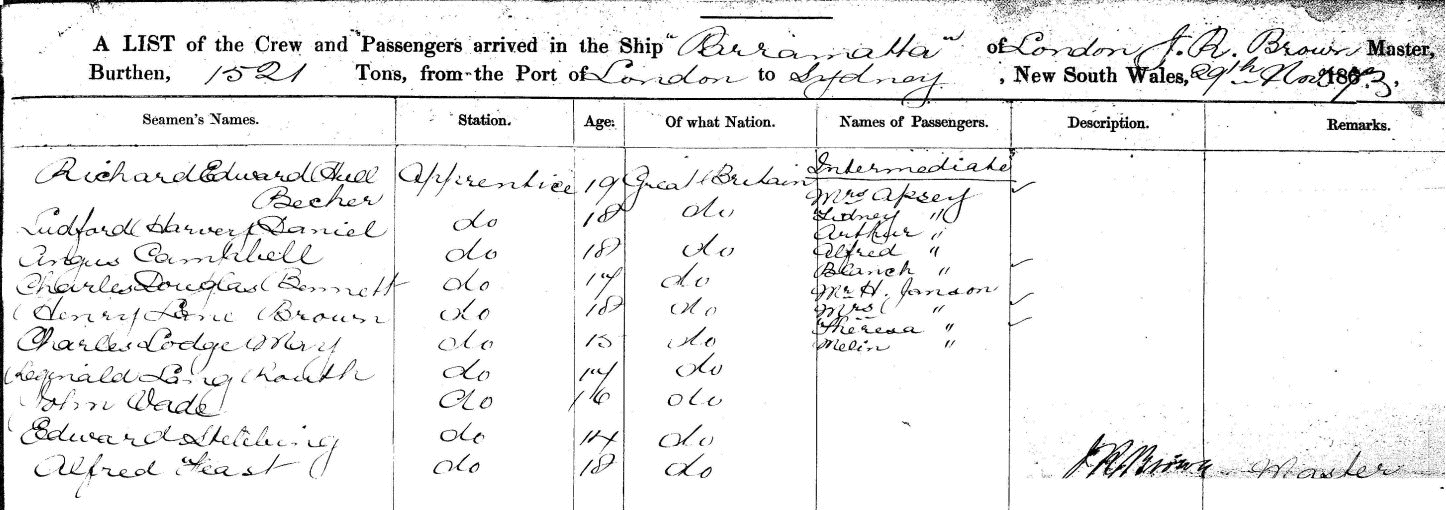 A LIST of the Crew and Passengers arrived in the Ship "Parramatta" of London J. R. Brown Master,
Burthen, 1521 Tons, from the Port of London to Sydney, New South Wales, 29th Nov 1873.
Seamen's Names. Station. Age. Of what Nation. Names of Passengers. Description. Remarks.
Intermediate
Richard Edward Hull Apprentice 19 Great Britain
Becher
Mrs Apsey
Ludford Harvey Daniel do 18 do
Sidney "
Arthur "
Angus Campbell do 18 do
Alfred "
Blanch "
Charles Douglas Bennett do 17 do
Mr H. Janson
Henry Lane Brown do 18 do
Mrs "
Theresa "
Charles Lodge do do
Melin "
Reginald Routh do 17 do
John Wade do 16 do
Edward do do
Alfred Feast do 18 do
J R Brown Master